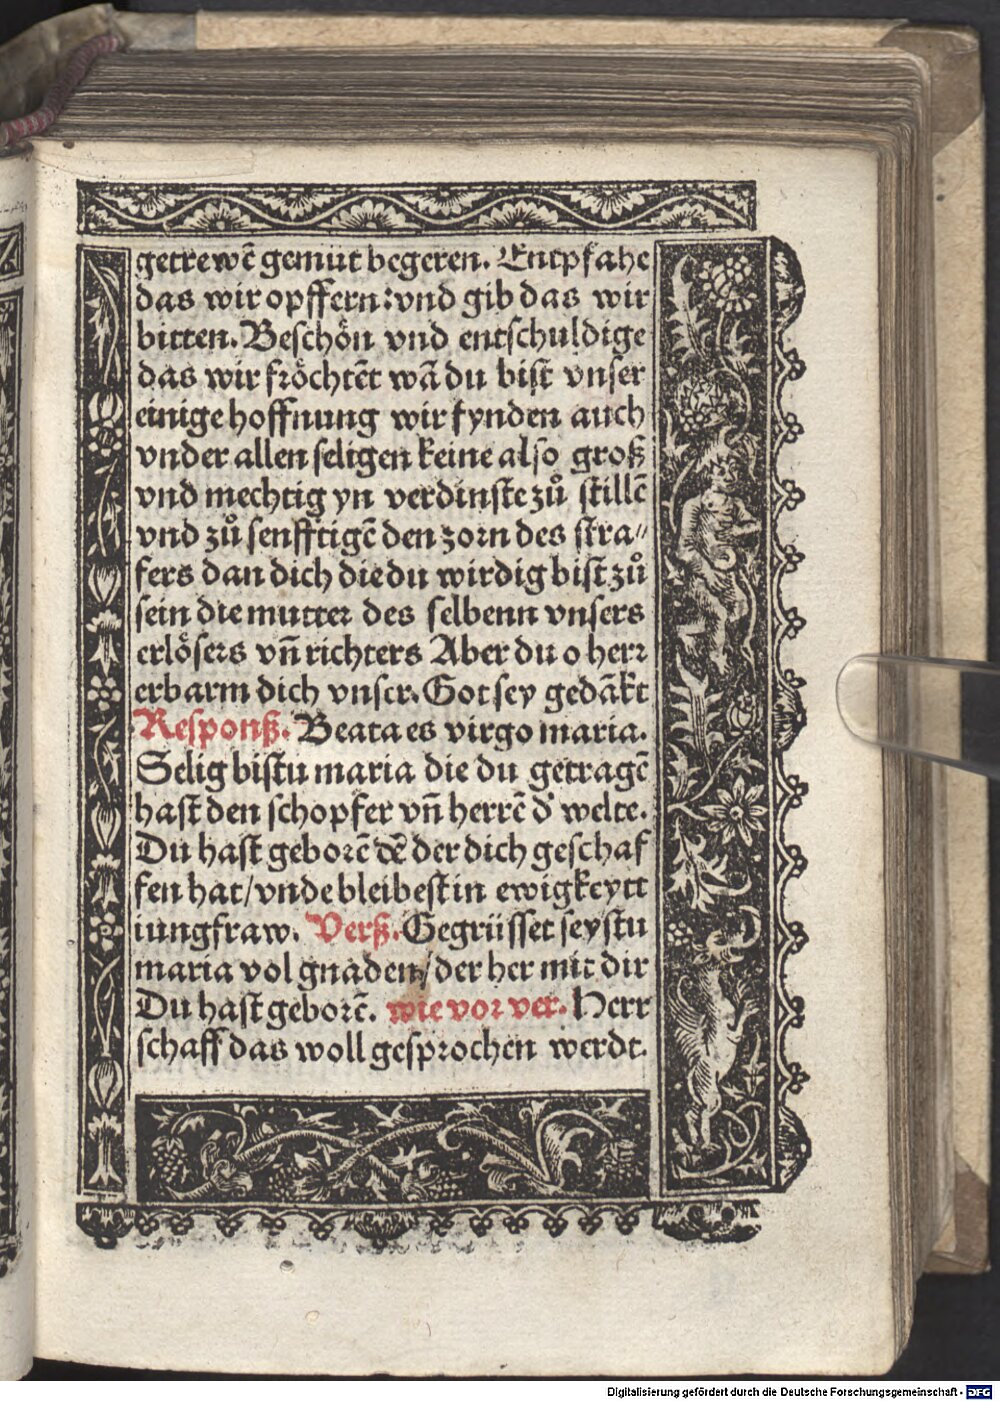 getrewē gemüt begeren. Entpfahe
das wir opffern: vnd gib das wir
bitten. Beschön vnd entschuldige
das wir fröchtēt wā du bist vnser
einige hoffnung wir fynden auch
vnder allen seligen keine also groß
vnd mechtig yn verdinste zů stillē
vnd zů senfftigē den zorn des stra⸗
fers dan dich die du wirdig bist zů
sein die mutter des selbenn vnsers
erlösers vñ richters Aber du o herr
erbarm dich vnser. Got sey gedākt
Responß. Beata es virgo maria.
Selig bistu maria die du getragē
hast den schopfer vñ herrē d̕ welte.
Du hast geborē dē der dich geschaf
fen hat/ vnde bleibest in ewigkeytt
iungfraw. Verß. Gegrüsset seystu
maria vol gnaden/ der her mit dir
Du hast geborē. wie vor ver. Herr
schaff das woll gesprochen werde.
Digitalisierung gefördert durch die Deutsche Forschungsgemeinschaft - DFG